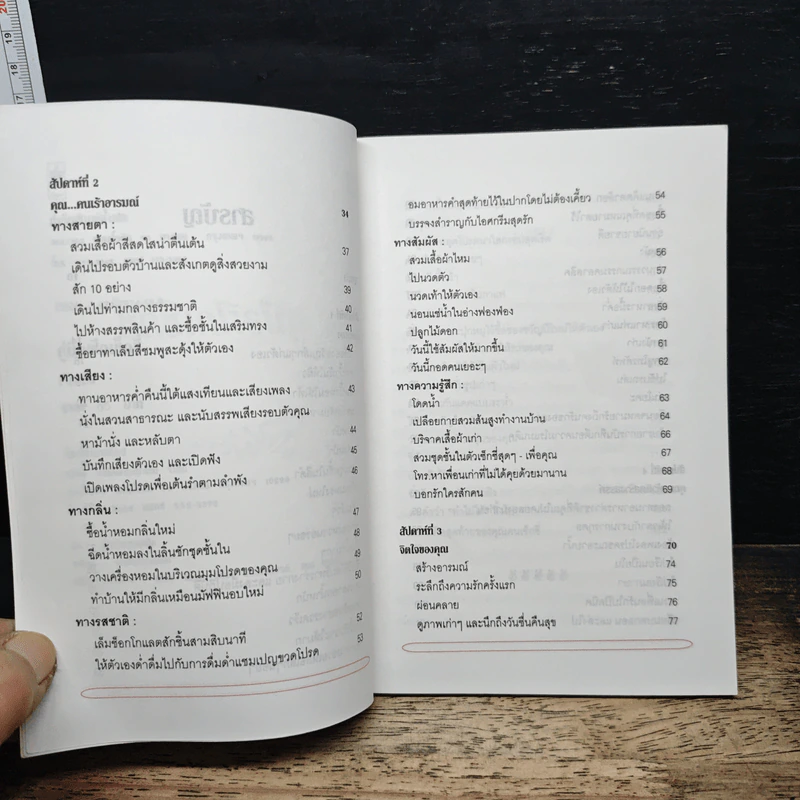 20
19
18
17
สัปดาห์ที่ 2
คุณ...คนเร้าอารมณ์ 34
ทางสายตา :
สวมเสื้อผ้าสีสดใสน่าตื่นเต้น 37
เดินไปรอบตัวบ้านและสังเกตดูสิ่งสวยงาม
สัก 10 อย่าง 39
เดินไปท่ามกลางธรรมชาติ 40
ไปห้างสรรพสินค้า และซื้อชั้นในเสริมทรง 41
ซื้อยาทาเล็บสีชมพูสะดุ้งให้ตัวเอง 42
ทางเสียง :
ทานอาหารค่ำคืนนี้ใต้แสงเทียนและเสียงเพลง 43
นั่งในสวนสาธารณะ และนับสรรพเสียงรอบตัวคุณ
หาม้านั่ง และหลับตา 44
บันทึกเสียงตัวเอง และเปิดฟัง 45
เปิดเพลงโปรดเพื่อเต้นรำตามลำพัง 46
ทางกลิ่น :
ซื้อน้ำหอมกลิ่นใหม่ 47
ฉีดน้ำหอมลงในลิ้นชักชุดชั้นใน 48
วางเครื่องหอมในบริเวณมุมโปรดของคุณ 49
ทำบ้านให้มีกลิ่นเหมือนมัฟฟินอบใหม่ 50
ทางรสชาติ :
เล็มช็อกโกแลตสักชิ้นสามสิบนาที 52
ให้ตัวเองด่ำดื่มไปกับการดื่มด่ำแชมเปญขวดโปรด 53
อมอาหารคำสุดท้ายไว้ในปากโดยไม่ต้องเคี้ยว 54
บรรจงสำราญกับไอศกรีมสุดรัก 55
ทางสัมผัส :
สวมเสื้อผ้าไหม 56
ไปนวดตัว 57
นวดเท้าให้ตัวเอง 58
นอนแช่น้ำในอ่างฟองฟ่อง 59
ปลูกไม้ดอก 60
วันนี้ใช้สัมผัสให้มากขึ้น 61
วันนี้กอดคนเยอะๆ 62
ทางความรู้สึก :
โดดน้ำ 63
เปลือยกายสวมส้นสูงทำงานบ้าน 64
บริจาคเสื้อผ้าเก่า 66
สวมชุดชั้นในตัวเซ็กซี่สุดๆ - เพื่อคุณ 67
โทร.หาเพื่อนเก่าที่ไม่ได้คุยด้วยมานาน 68
บอกรักใครสักคน 69
สัปดาห์ที่ 3
จิตใจของคุณ 70
สร้างอารมณ์ 74
ระลึกถึงความรักครั้งแรก 75
ผ่อนคลาย 76
ดูภาพเก่าๆ และนึกถึงวันชื่นคืนสุข 77